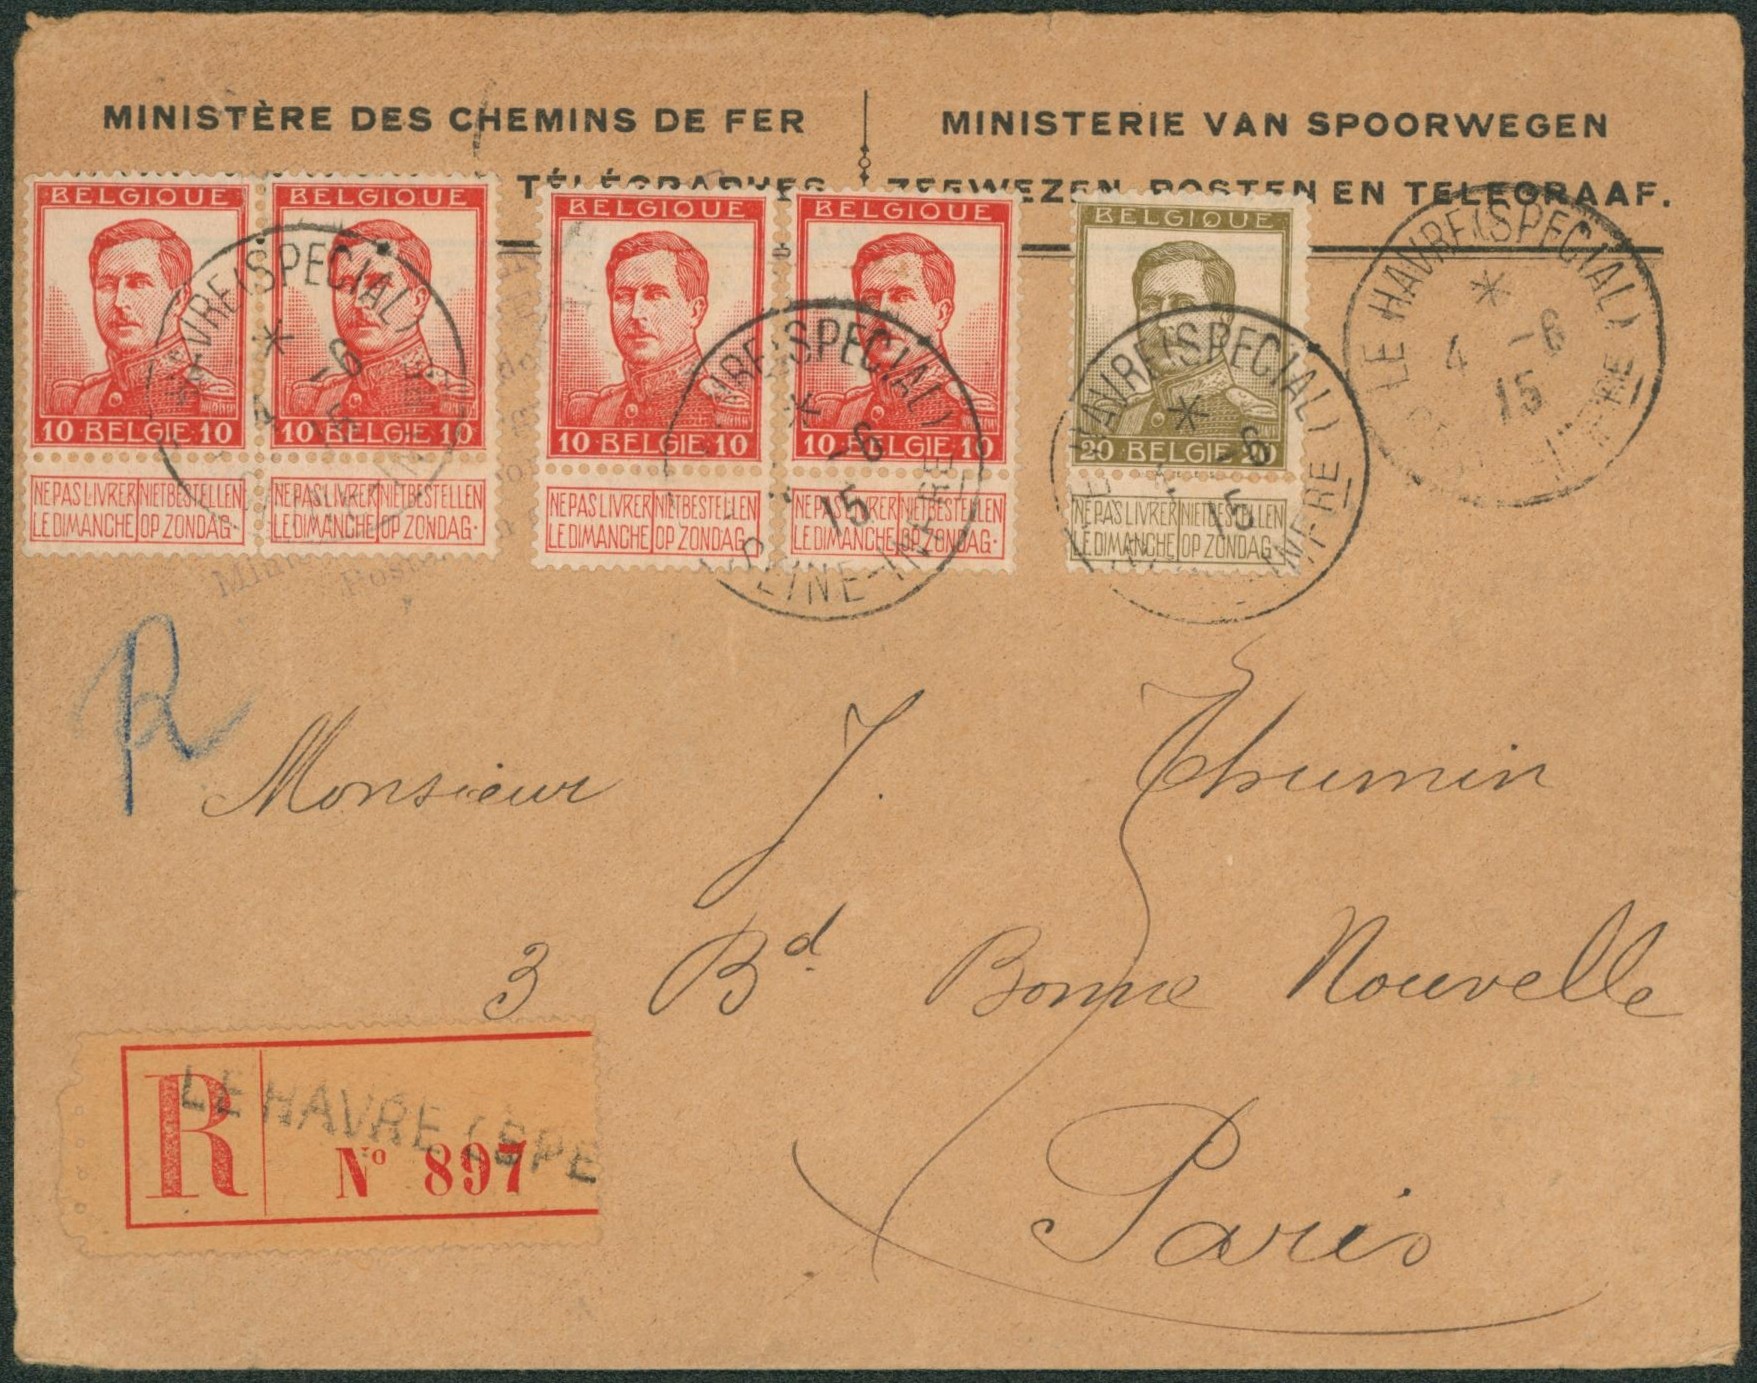 MINISTÈRE DES CHEMINS DE FER
TÉLÉGRAPHES
MINISTERIE VAN SPOORWEGEN
ZEEWEZEN, POSTEN EN TELEGRAAF.
BELGIQUE
10 BELGIE 10
NE PAS LIVRER LE DIMANCHE
NIET BESTELLEN OP ZONDAG.
BELGIQUE
10 BELGIE 10
NE PAS LIVRER LE DIMANCHE
NIET BESTELLEN OP ZONDAG.
BELGIQUE
10 BELGIE 10
NE PAS LIVRER LE DIMANCHE
NIET BESTELLEN OP ZONDAG.
BELGIQUE
10 BELGIE 10
NE PAS LIVRER LE DIMANCHE
NIET BESTELLEN OP ZONDAG.
BELGIQUE
20 BELGIE 20
NE PAS LIVRER LE DIMANCHE
NIET BESTELLEN OP ZONDAG.
HAVRE (SPECIAL)
4 -6
15
VRE (SPECIAL)
-6
15
SEINE-INFRE
LE HAVRE (SPECIAL)
-6
15
INFRE
LE HAVRE (SPECIAL)
4 -6
15
R
Monsieur J. Thumin
3 Bd. Bonne Nouvelle
Paris
R
LE HAVRE (SPE
No 897